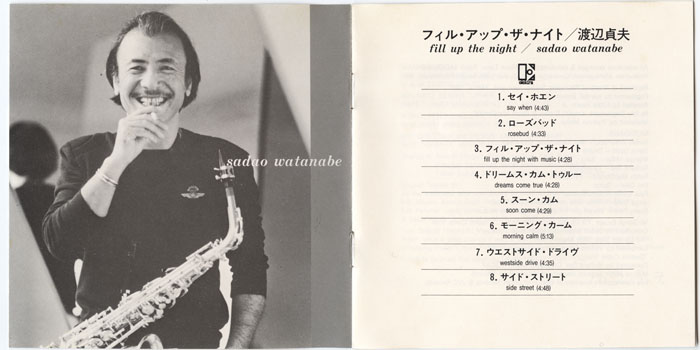 sadao watanabe
フィル・アップ・ザ・ナイト／渡辺貞夫
fill up the night / sadao watanabe
1. セイ・ホエン
say when (4:43)
2. ローズバッド
rosebud (4:33)
3. フィル・アップ・ザ・ナイト
fill up the night with music (4:28)
4. ドリームス・カム・トゥルー
dreams come true (4:28)
5. スーン・カム
soon come (4:29)
6. モーニング・カーム
morning calm (5:13)
7. ウエストサイド・ドライヴ
westside drive (4:35)
8. サイド・ストリート
side street (4:48)